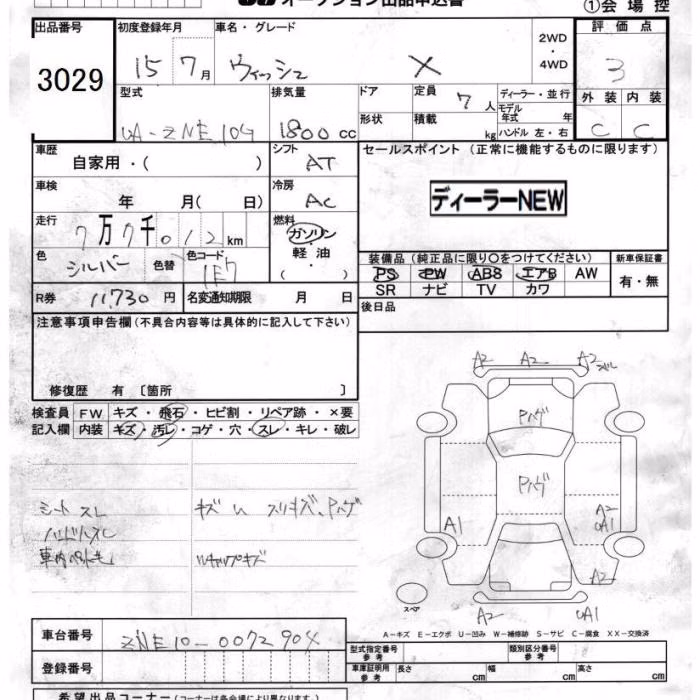 オークション出品申込書
①会場控
出品番号 初度登録年月 車名・グレード 2WD 評価点
3029 15 7月 ウィッシュ X ・ 4WD 3
型式 排気量 ドア 定員 7人 ディーラー・並行 外装 内装
モデル年式 年
UA-ZNE10G 1800 cc 形状 積載 kg ハンドル 左・右 C C
車歴 自家用・( ) シフト AT セールスポイント (正常に機能するものに限ります)
車検 年 月( 日) 冷房 AC ディーラーNEW
走行 7万7千012km 燃料 ガソリン
・
軽油
・
( )
色 シルバー 色替 色コード 1E7
装備品 (純正品に限り○をつけてください) 新車保証書
PS PW ABS エアB AW 有・無
SR ナビ TV カワ
R券 11,730円 名変通知期限 月 日 後日品
注意事項申告欄(不具合内容等は具体的に記入して下さい)
修復歴 有 〔箇所 〕
検査員 FW キズ・飛石・ヒビ割・リペア跡・×要
記入欄 内装 キズ・汚レ・コゲ・穴・スレ・キレ・破レ
シートスレ キズ凹 スリキズ、Pハゲ
ハンドルスレ
車内ペットモ Wキャップキズ
A2 A2 A2
Pハゲ
Pハゲ
A1 A2
UA1
A2
スペア
A2 UA1
A-キズ E-エクボ U-凹み W-補修跡 S-サビ C-腐食 XX-交換済
車台番号 ZNE10-0072904
登録番号
型式指定番号 参考 類別区分番号 参考
車庫証明用 参考 長さ cm 幅 cm 高さ cm
希望出品コーナー(コーナーは各会場により異なります。)